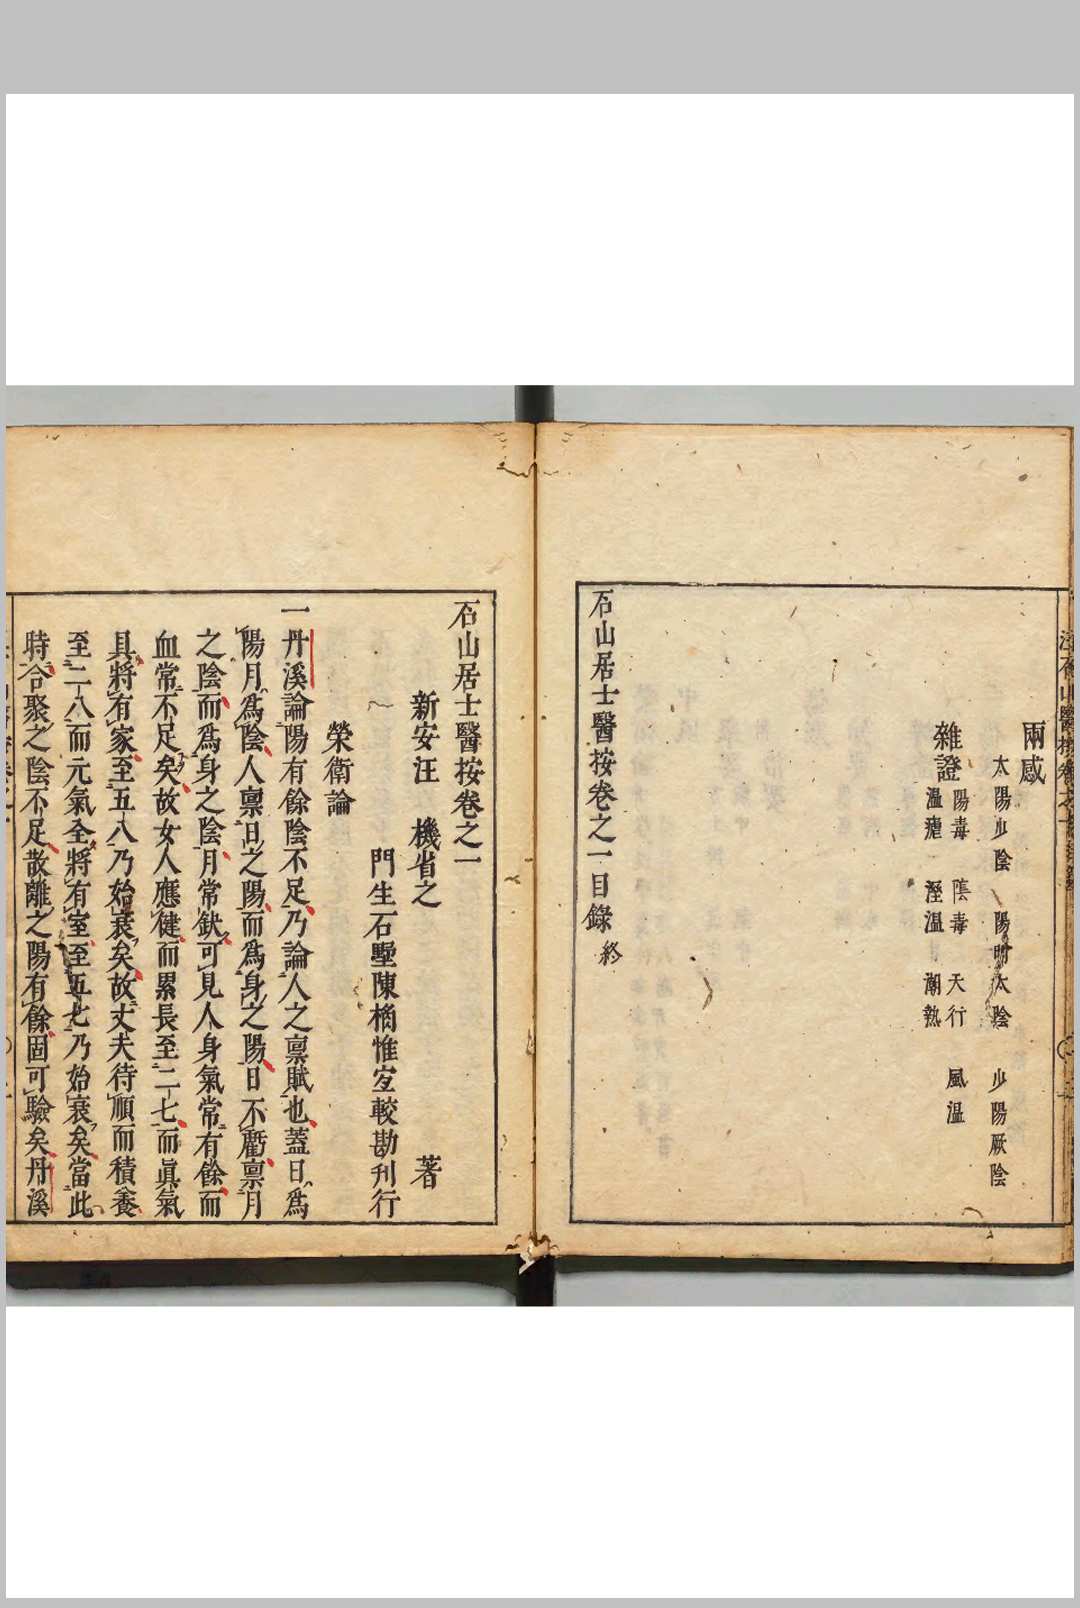 兩感
太陽少陰 陽明太陰 少陽厥陰
雜證
陽毒 陰毒 天行 風溫
溫瘧 溼溫 潮熱
石山居士醫按卷之一目錄終
石山居士醫按卷之一
新安汪 機省之 著
門生石墅陳桷惟宜較勘刊行
榮衛論
一丹溪論陽有餘陰不足乃論人之禀賦也蓋日爲
陽月爲陰人禀日之陽而爲身之陽日不虧禀月
之陰而爲身之陰月常缺可見人身氣常有餘而
血常不足矣故女人應健而累長至二七而眞氣
具將有家至五八乃始衰矣故丈夫待順而積養
至二八而元氣全將有室至五七乃始衰矣當此
時合聚之陰不足散離之陽有餘固可驗矣丹溪